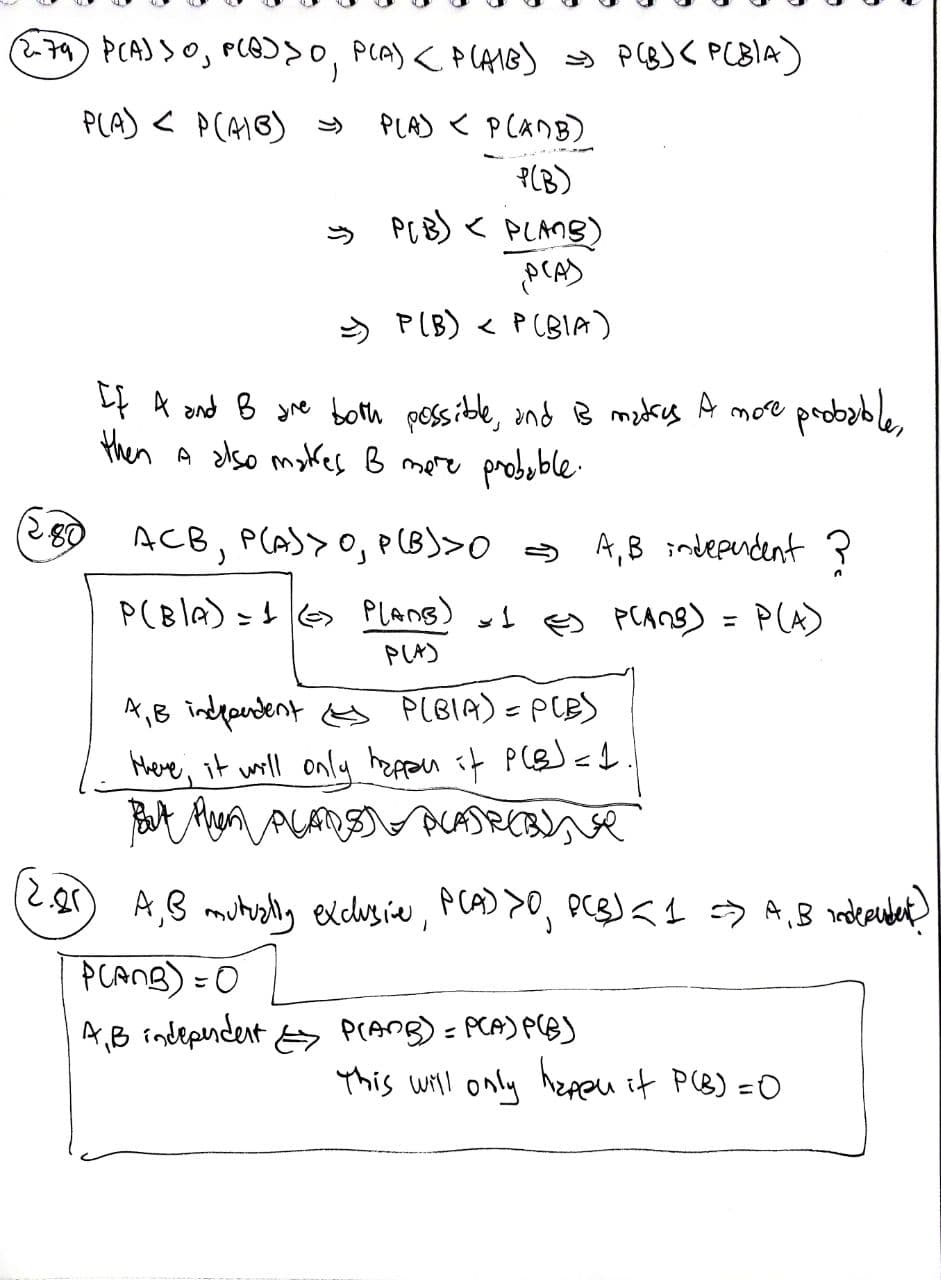 2.79 P(A)>0, P(B)>0, P(A) < P(A|B) ⇒ P(B) < P(B|A)
P(A) < P(A|B) ⇒ P(A) < P(A∩B)
P(B)
⇒ P(B) < P(A∩B)
P(A)
⇒ P(B) < P(B|A)
If A and B are both possible, and B makes A more probable,
then A also makes B more probable.
2.80 A⊂B, P(A)>0, P(B)>0 ⇒ A,B independent ?
P(B|A) = 1 ⇔ P(A∩B) = 1 ⇔ P(A∩B) = P(A)
P(A)
A,B independent ⇔ P(B|A) = P(B)
Here, it will only happen if P(B) = 1.
But then P(A∩B) = P(A)P(B), so
2.81 A,B mutually exclusive, P(A)>0, P(B)<1 ⇒ A,B independent?
P(A∩B) = 0
A,B independent ⇔ P(A∩B) = P(A)P(B)
This will only happen if P(B) = 0